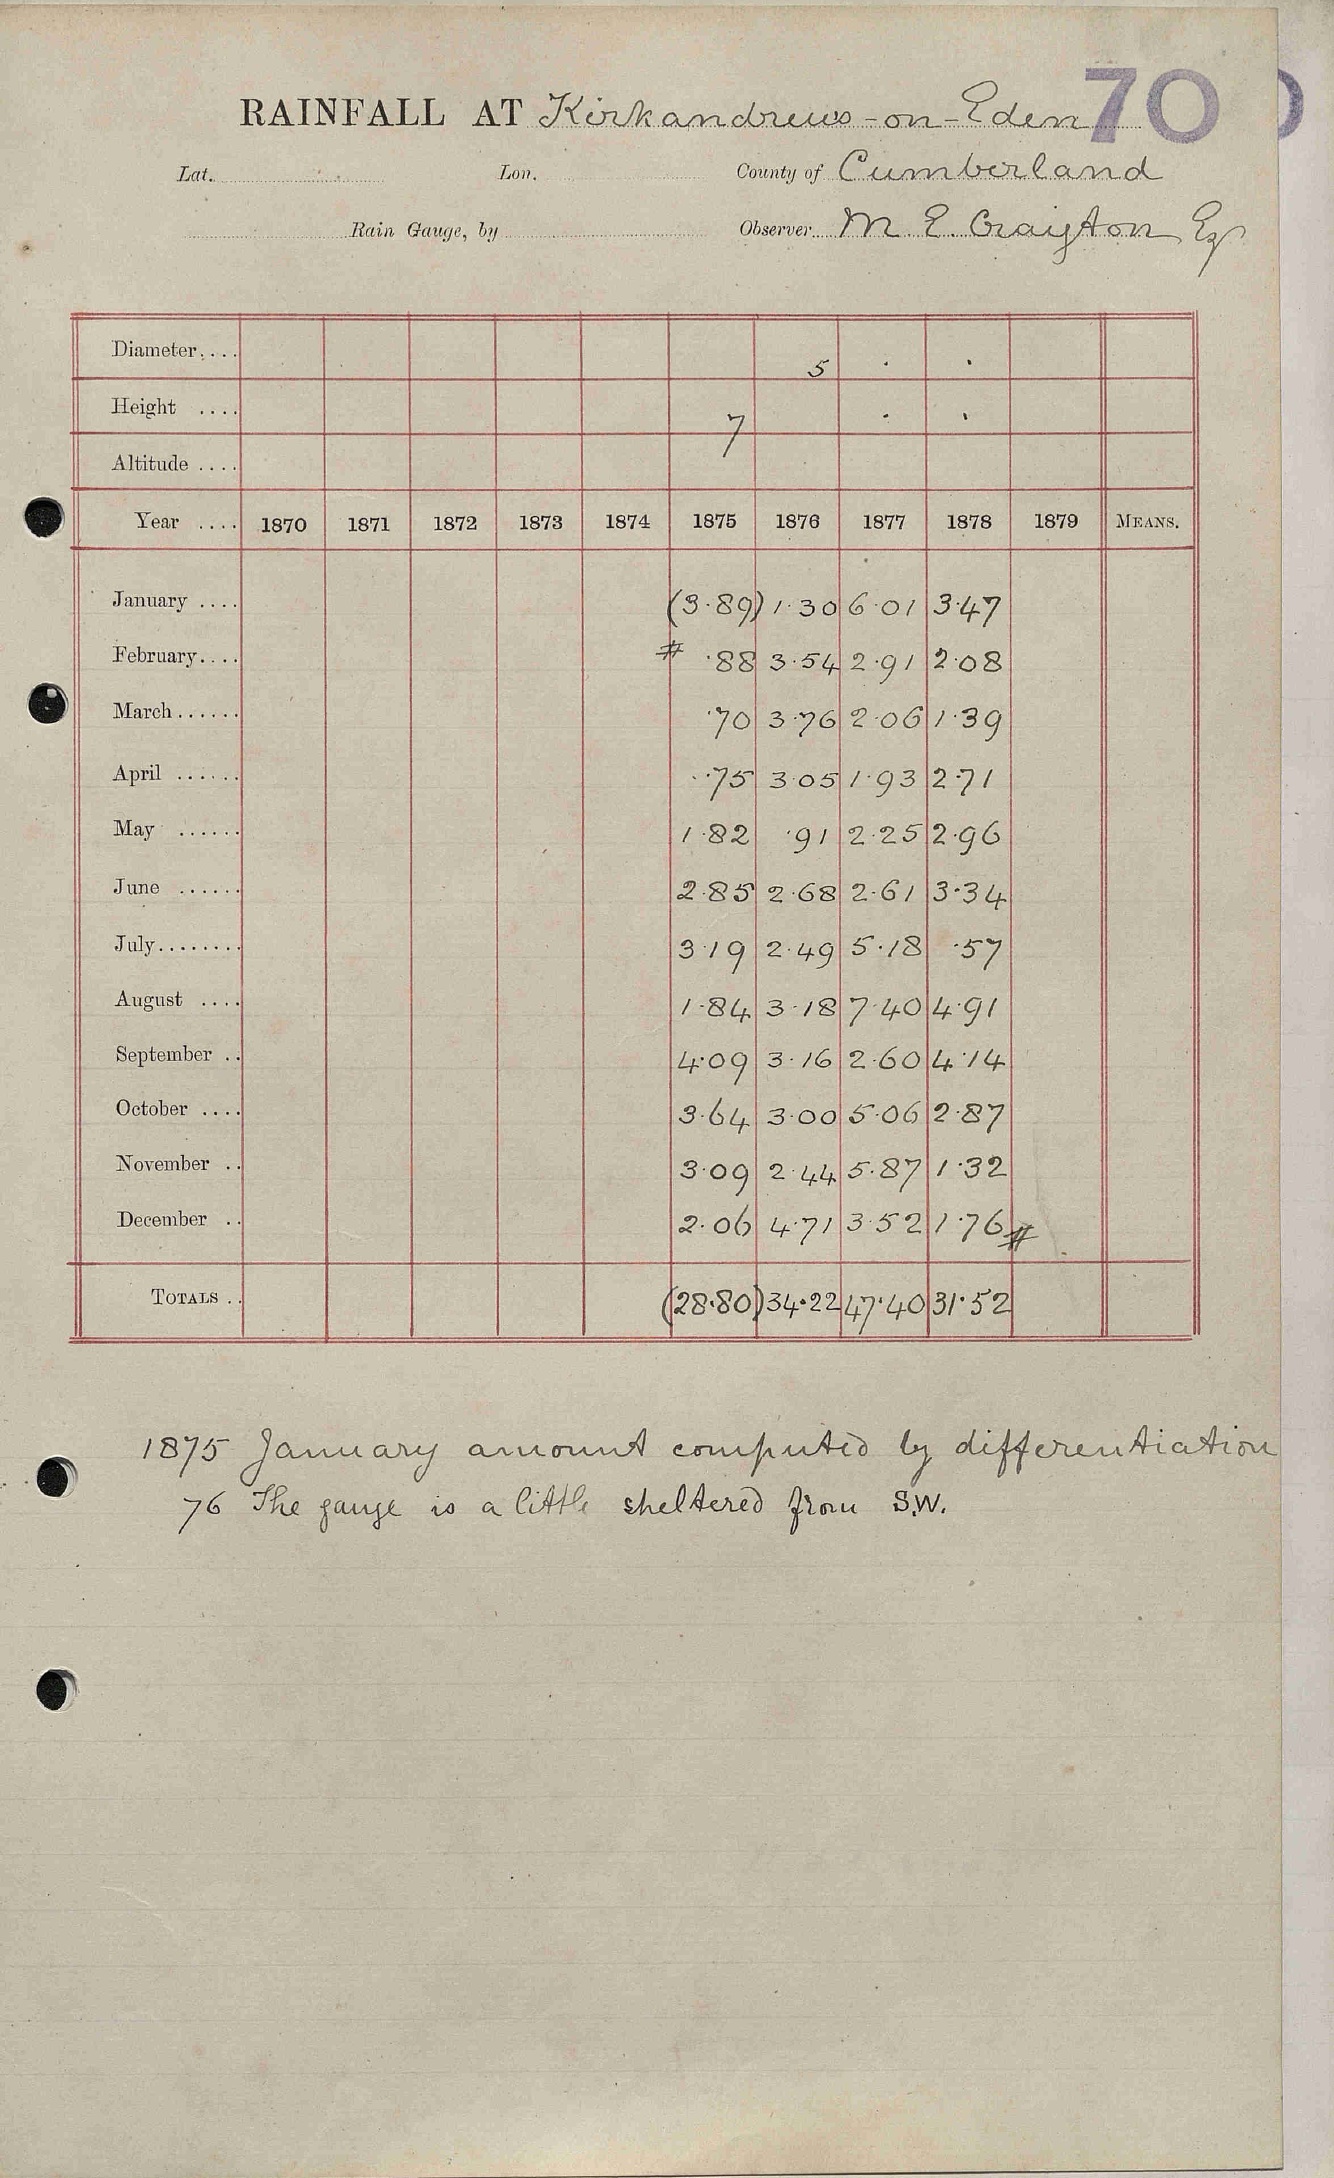 70
RAINFALL AT Kirkandrews-on-Eden
Lat. Lon. County of Cumberland
Rain Gauge, by Observer M E Esq
Diameter.... 5 . .
Height .... 7 . .
Altitude ....
Year .... 1870 1871 1872 1873 1874 1875 1876 1877 1878 1879 MEANS.
January .... (3.89) 1.30 6.01 3.47
February.... # .88 3.54 2.91 2.08
March...... .70 3.76 2.06 1.39
April ...... .75 3.05 1.93 2.71
May ...... 1.82 .91 2.25 2.96
June ...... 2.85 2.68 2.61 3.34
July........ 3.19 2.49 5.18 .57
August .... 1.84 3.18 7.40 4.91
September .. 4.09 3.16 2.60 4.14
October .... 3.64 3.00 5.06 2.87
November .. 3.09 2.44 5.87 1.32
December .. 2.06 4.71 3.52 1.76 #
TOTALS .. (28.80) 34.22 47.40 31.52
1875 January amount computed by differentiation
76 The gauge is a little sheltered from S.W.